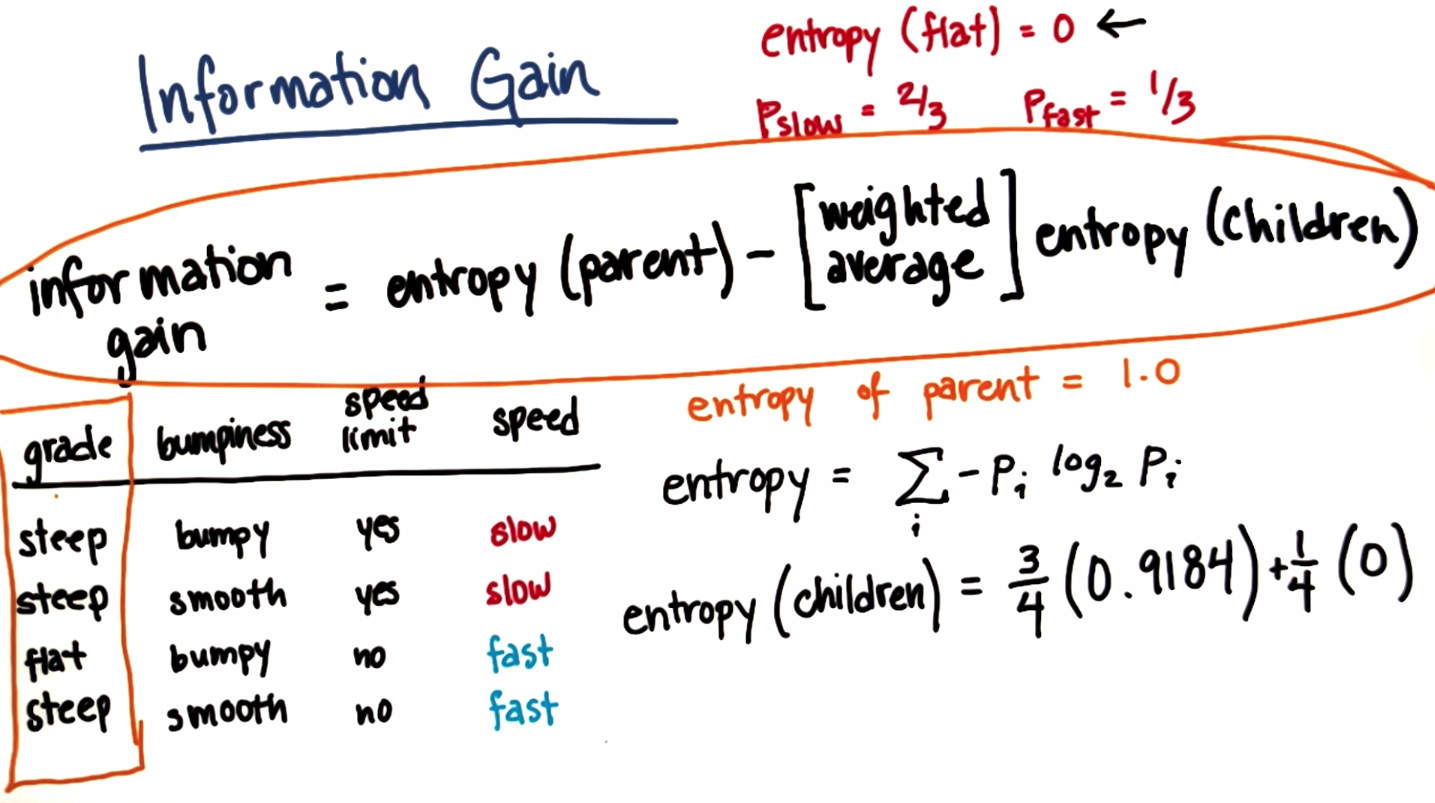 Information Gain
entropy (flat) = 0 ←
Pslow = 2/3 Pfast = 1/3
information gain = entropy (parent) - [weighted average] entropy (children)
entropy of parent = 1.0
grade bumpiness speed limit speed
steep bumpy yes slow
steep smooth yes slow
flat bumpy no fast
steep smooth no fast
entropy = Σi -Pi log2 Pi
entropy (children) = 3/4 (0.9184) + 1/4 (0)